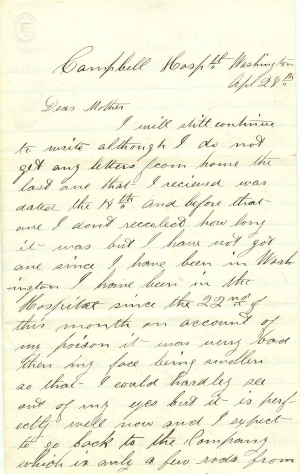 Campbell Hospth Washington
Apl 28th
Dear Mother
I will still continue
to write although I do not
get any letters from home the
last one that I recieved was
dated the 14th and before that
one I dont reccolect how long
it was but I have not got
one since I have been in Wash
ington I have been in the
Hospital since the 22nd of
this month on account of
my poison it was very bad
then my face being swollen
so that I could hardly see
out of my eyes but it is perf-
ectly well now and I expect
to go back to the Company
which is only a few rods from